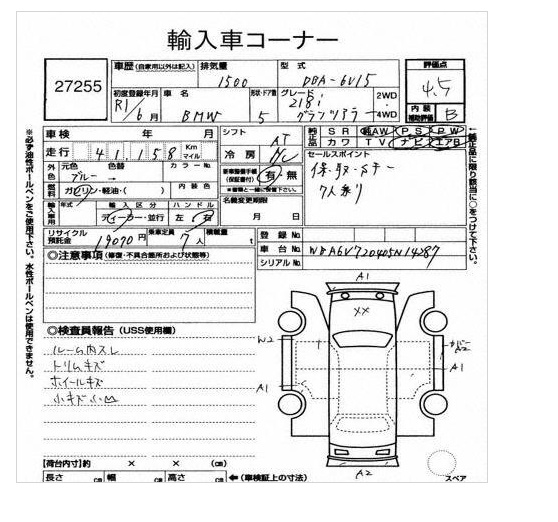 輸入車コーナー
27255
車歴 (自家用以外は記入) 排気量 型式 評価点
1500 DBA-6V15 4.5
初度登録年月 車名 形状・ドア数 グレード 2WD
R1/6月 BMW 5 218i グランツアラー 4WD
内装補助評価 B
車検 年 月 シフト AT
純正品 SR 純AW PS PW
カワ TV ナビ エアB
走行 41,158 Km マイル
冷房 AC
セールスポイント
保・取・Sキー
7人乗り
外色 元色 色替 カラーNo.
ブルー
燃料 ガソリン・軽油・( ) 内装色
乗車整備手帳 (保証書付) 有・無
輸入車用 年式 輸入区分 ハンドル
ディーラー・並行 左 右
名義変更期限
月 日
リサイクル預託金 19070円 乗車定員 7人 積載量 t
登録No.
車台No. WBA6V720405N14287
シリアルNo.
◎注意事項 (修復・不具合箇所および状態等)
◎検査員報告 (USS使用欄)
ルーム内スレ
トリムキズ
ホイールキズ
小キズ小凹
A1
XX
W2
カバーA2
A1
A1
A2
スペア
【荷台内寸】約 × × (cm)
長さ cm 幅 cm 高さ cm ←(車検証上の寸法)
※必ず油性ボールペンをご使用下さい。水性ボールペンは使用できません。
←純正品に限り該当に○をつけて下さい。